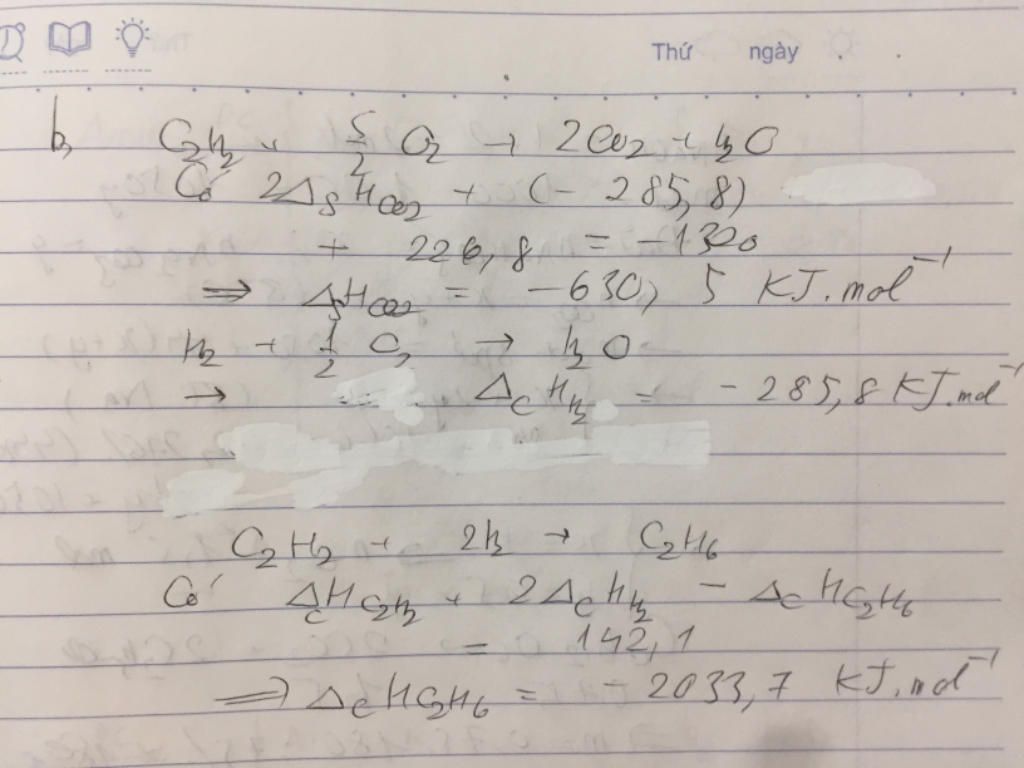 Thứ ngày
b, C2H2 + 5/2 O2 → 2CO2 + H2O
Có 2ΔSHCO2 + (- 285,8)
+ 226,8 = -1320
⇒ ΔSHCO2 = -630,5 KJ.mol⁻¹
H2 + 1/2 O2 → H2O
→ ΔCHH2 = - 285,8 KJ.mol⁻¹
C2H2 + 2H2 → C2H6
Có ΔCHC2H2 + 2ΔCHH2 - ΔCHC2H6
= 142,1
⇒ ΔCHC2H6 = - 2033,7 KJ.mol⁻¹